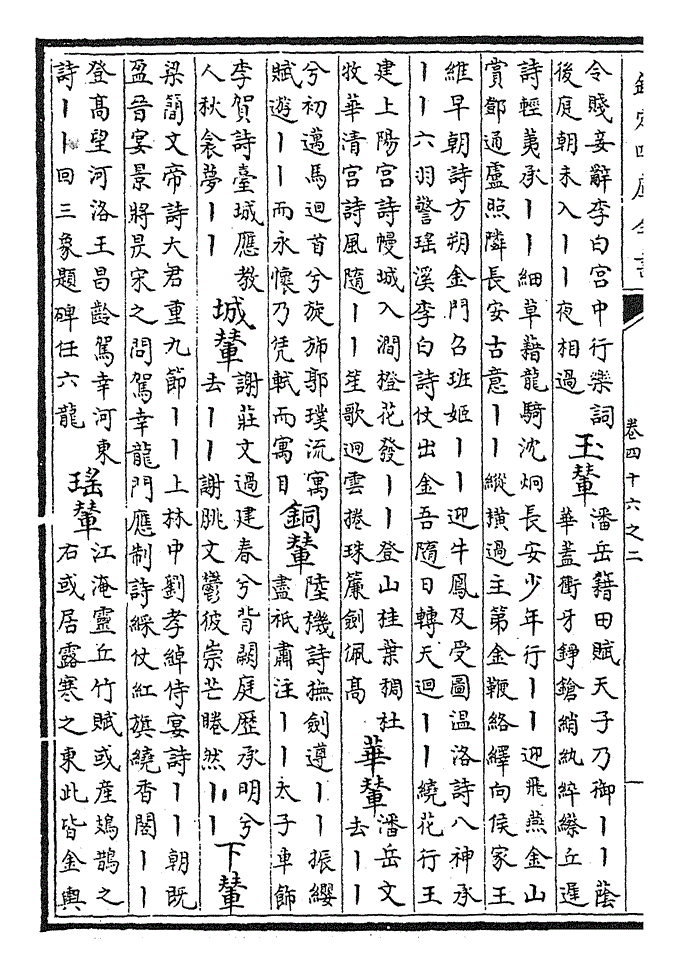 欽定四庫全書
卷四十六之二
一
令賤妾辭李白宮中行樂詞
後庭朝未入丨丨夜相過
玉輦
潘岳籍田賦天子乃御丨丨蔭
華蓋衝牙錚鎗綃紈綷縩丘遲
詩輕荑承丨丨細草藉龍騎沈炯長安少年行丨丨迎飛燕金山
賞鄧通盧照隣長安古意丨丨縱橫過主第金鞭絡繹向侯家王
維早朝詩方朔金門召班姬丨丨迎牛鳳及受圖温洛詩八神承
丨丨六羽警瑤溪李白詩仗出金吾隨日轉天迴丨丨繞花行王
建上陽宮詩幔城入澗橙花發丨丨登山桂葉稠杜
牧華清宮詩風隨丨丨笙歌迥雲捲珠簾劍佩高
華輦
潘岳文
去丨丨
兮初邁馬迴首兮旋斾郭璞流寓
賦遊丨丨而永懷乃凭軾而寓目
銅輦
陸機詩撫劍遵丨丨振纓
盡祇肅注丨丨太子車飾
李賀詩臺城應教
人秋衾夢丨丨
城輦
謝莊文過建春兮背闕庭歷承明兮
去丨丨謝朓文鬱彼崇芒睠然丨丨
下輦
梁簡文帝詩大君重九節丨丨上林中劉孝綽侍宴詩丨丨朝既
盈音宴景將昃宋之問駕幸龍門應制詩綵仗紅旗繞香閣丨丨
登高望河洛王昌齡駕幸河東
詩丨丨回三象題碑任六龍
瑤輦
江淹靈丘竹賦或產鳷鵲之
右或居露寒之東此皆金輿